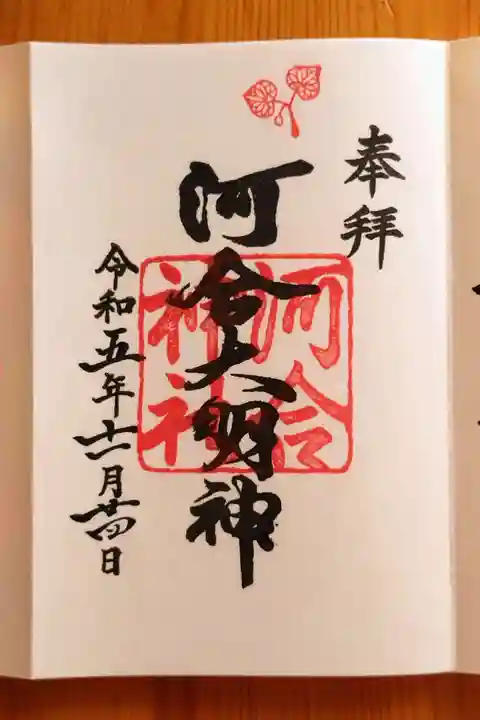 奉拝
河合大明神
河合神社
令和五年十一月廿四日